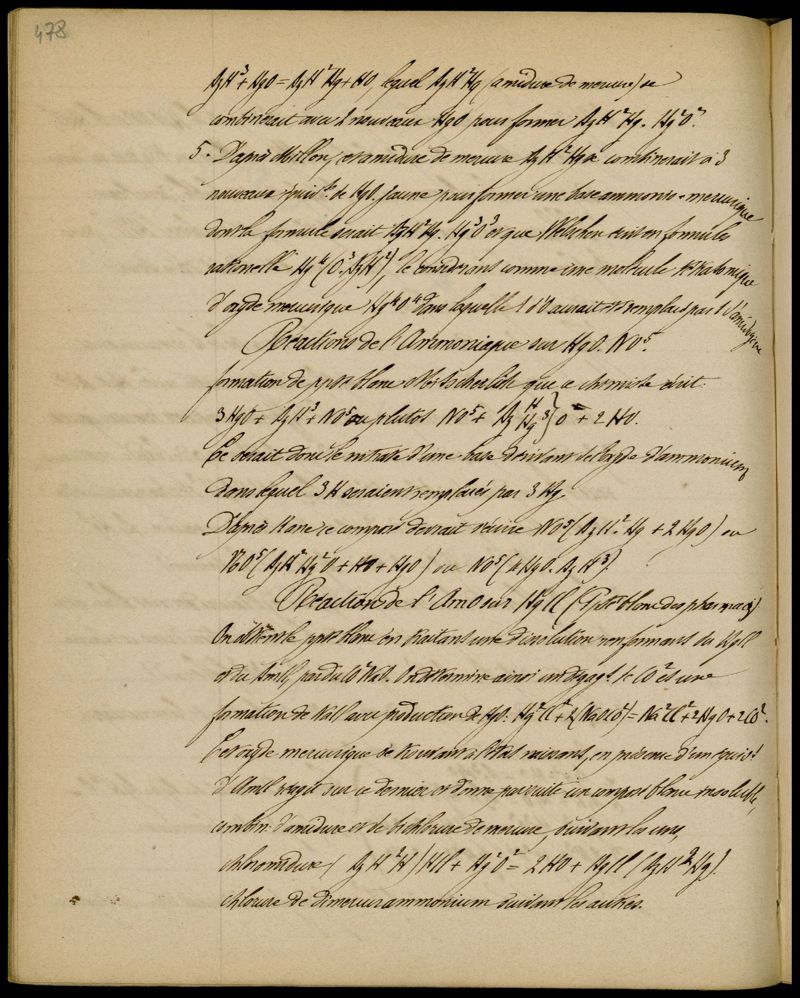 478
AzH³ + HgO = AzH²Hg + HO, lequel AzH²Hg (amidure de mercure) se
combinerait avec 2 nouveaux HgO pour former AzH²Hg. Hg²O².
5° D'après Millon, cet amidure de mercure AzH²Hg se combinerait à 3
nouveaux équiv^ts. de HgO. jaune pour former une base ammonio-mercurique
dont la formule serait AzH²Hg. Hg³O³ et que Weltzien écrit en formule
rationnelle Hg⁴(O³.AzH²) le considérant comme une molécule tétratomique
d'oxyde mercurique Hg⁴O⁴ dans laquelle 1 d'O aurait été remplacé par 1 d'amidogène
Réactions de l'Ammoniaque sur HgO. NO⁵.
formation de ppté blanc Mitscherlich que ce chimiste écrit:
3HgO + AzH³ + NO⁵ ou plutôt NO⁵ + Az H Hg³} O + 2HO.
Ce serait donc le nitrate d'une base dérivant de l'oxyde d'ammonium
dans lequel 3H seraient remplacés par 3Hg.
D'après Kane ce composé devrait s'écrire NO⁵(AzH².Hg + 2HgO) ou
NO⁵(AzH²Hg²O + HO + HgO) ou NO⁵(3HgO. AzH³)
Réaction de l'Amo sur HgCl (Ppté blanc des pharmacies)
On obtient le ppté blanc en traitant une dissolution renfermant du HgCl
et du AmCl, par du CO²NaO. On détermine ainsi un dégag^t de CO² et une
formation de NaCl avec production de HgO: Hg²Cl² + 2(NaOCO²) = Na²Cl² + 2HgO + 2CO².
Cet oxyde mercurique se trouvant à l'état naissant, en présence d'un équiv^t
d'AmCl réagit sur ce dernier et donne par suite un composé blanc insoluble,
combin. d'amidure et de bichlorure de mercure, suivant les uns,
chloramidure (AzH²H)HCl + Hg²O² = 2HO + HgCl(AzH²Hg).
chlorure de dimercurammonium suivant les autres.